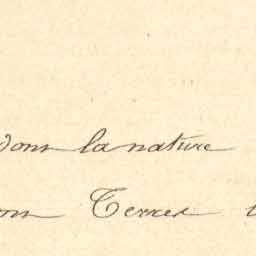 dans la nature
Terres